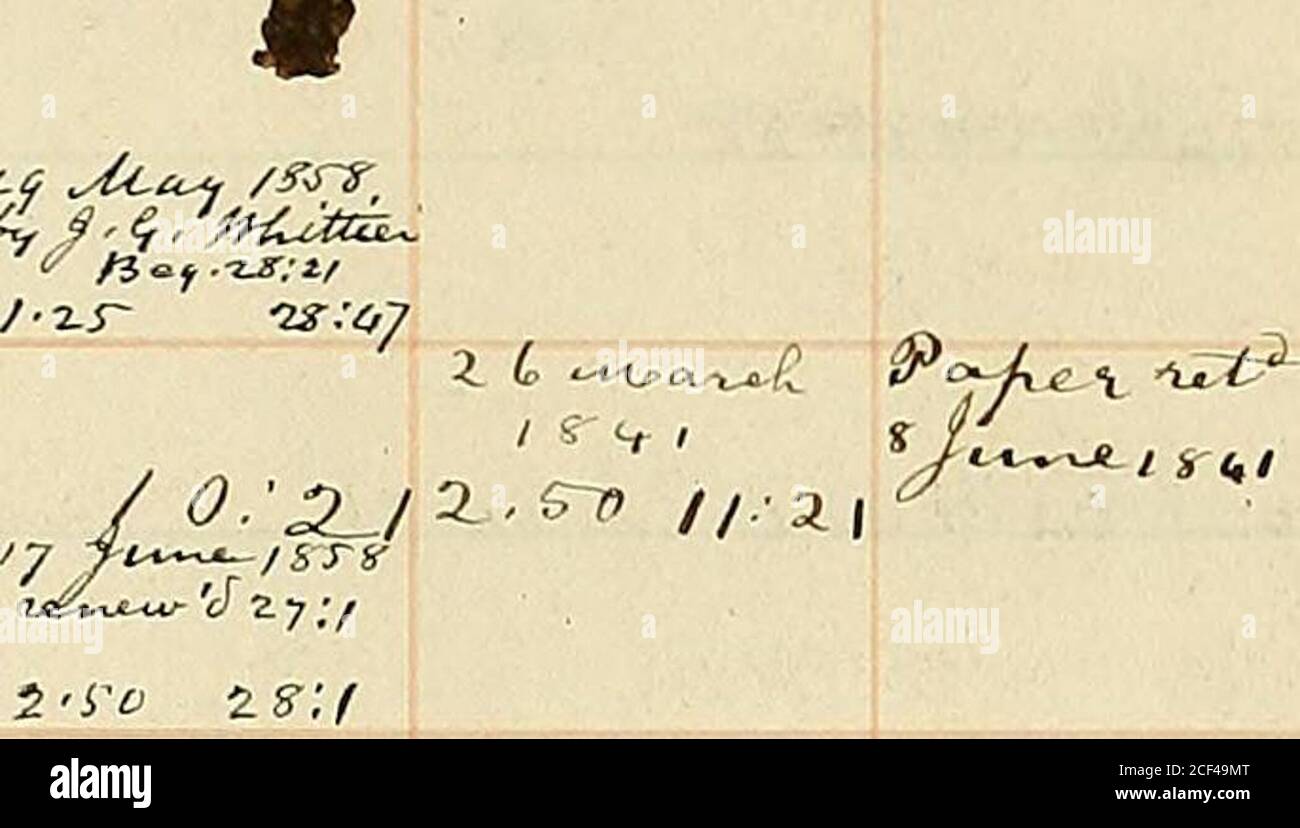 29 May 1858,
by J. G. Whittier
Beg. 28:21
1.25 28:47
10:21
17 June 1858
renew'd 27:1
2.50 28:1
26 March
1841
2.50 11:21
Paper ret^d
8 June 1841
a alamy
alamy
Image ID: 2CF49MT
www.alamy.com